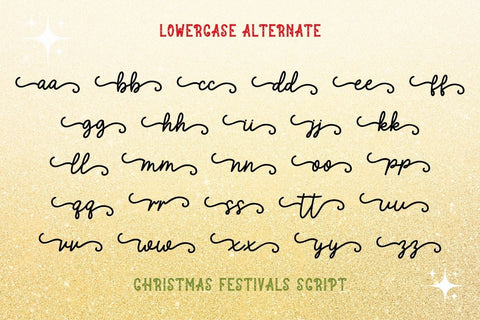 LOWERCASE ALTERNATE
aa bb cc dd ee ff
gg hh ii jj kk
ll mm nn oo pp
qq rr ss tt uu
vv ww xx yy zz
CHRISTMAS FESTIVALS SCRIPT